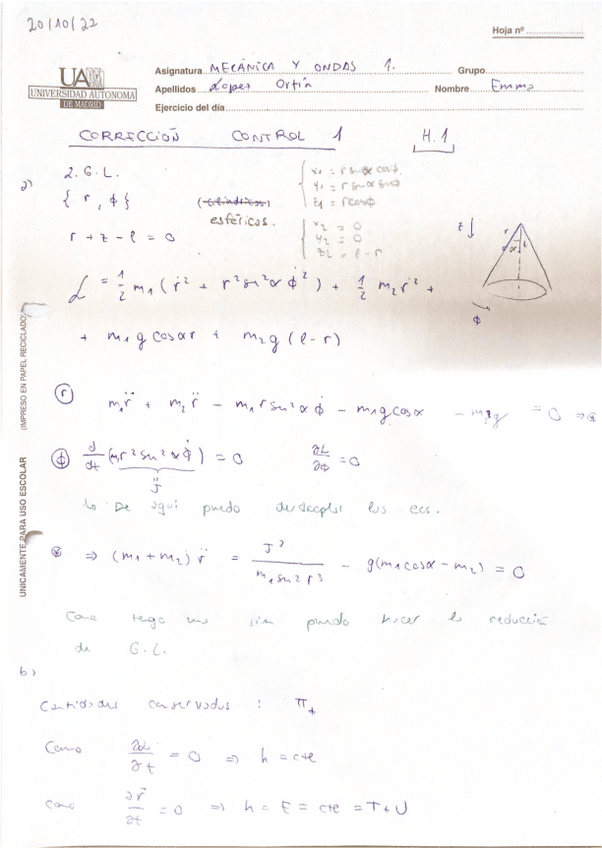 20/10/22
Hoja nº
UAM
UNIVERSIDAD AUTONOMA
DE MADRID
Asignatura MECÁNICA Y ONDAS 1. Grupo
Apellidos López Ortín Nombre Emma
Ejercicio del día
CORRECCIÓN CONTROL 1 H.1
a) 2. G.L.
{ r, ϕ }
(cilíndricas)
esféricos.
x₁ = r sin α cos ϕ
y₁ = r sin α sin ϕ
z₁ = r cos ϕ
x₂ = 0
y₂ = 0
z₂ = l - r
r + z - l = 0
z ↓ r α ϕ
L = 1/2 m₁ (ṙ² + r² sin² α ϕ̇²) + 1/2 m₂ ṙ² +
+ m₁ g cos α r + m₂ g (l - r)
(r) m₁ r̈ + m₂ r̈ - m₁ r sin² α ϕ̇ - m₁ g cos α - m₂ g = 0 ⇒ ⊛
(ϕ) d/dt (m₁ r² sin² α ϕ̇) = 0 ∂L/∂ϕ = 0
J
↳ De aquí puedo desacoplar las ecs.
⊛ ⇒ (m₁ + m₂) r̈ = J² / m₁ sin² r³ - g(m₁ cos α - m₂) = 0
Como tengo una sim puedo hacer la reducción
de G.L.
b)
Cantidades conservadas : π
Como ∂L/∂t = 0 ⇒ h = cte
como ∂r⃗/∂t = 0 ⇒ h = E = cte = T + U
UNICAMENTE PARA USO ESCOLAR (IMPRESO EN PAPEL RECICLADO)